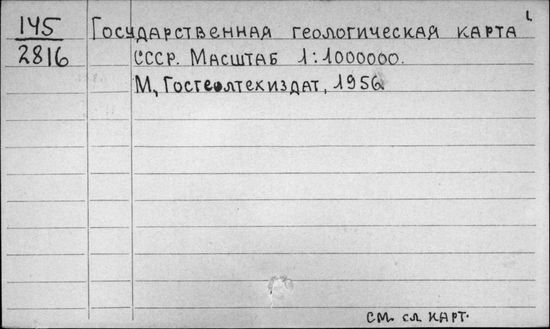 145 Государственная геологическая карта
2816 СССР. Масштаб 1:1000000.
М, Госгеолтехиздат, 1956
см. сл. карт.